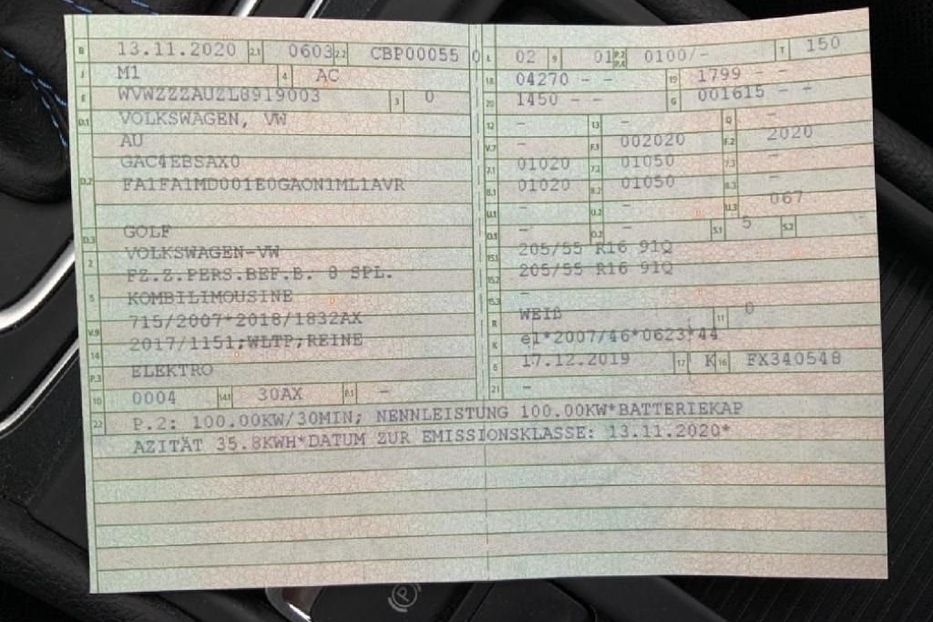 B 13.11.2020 2.1 0603 2.2 CBP00055 0
J M1 4 AC
E WVWZZZAUZL8919003 3 0
D.1 VOLKSWAGEN, VW
AU
GAC4EBSAX0
D.2 FA1FA1MD001E0GAON1ML1AVR
D.3 GOLF
2 VOLKSWAGEN-VW
FZ.Z.PERS.BEF.B. 8 SPL.
5 KOMBILIMOUSINE
715/2007*2018/1832AX
V.9 2017/1151;WLTP;REINE
14
P.3 ELEKTRO
10 0004 14.1 30AX P.1 -
L 02 9 01 P.2 P.4 0100/- T 150
18 04270 - - 19 1799 - -
20 1450 - - G 001615 - -
12 - 13 - Q -
V.7 - F.1 002020 F.2 2020
7.1 01020 7.2 01050 7.3 -
8.1 01020 8.2 01050 8.3 -
U.1 - U.2 - U.3 067
O.1 - O.2 - S.1 5 S.2 -
15.1 205/55 R16 91Q
15.2 205/55 R16 91Q
15.3 -
R WEIß 11 0
K e1*2007/46*0623*44
6 17.12.2019 17 K 16 FX340548
21 -
22 P.2: 100.00KW/30MIN; NENNLEISTUNG 100.00KW*BATTERIEKAP
AZITÄT 35.8KWH*DATUM ZUR EMISSIONSKLASSE: 13.11.2020*